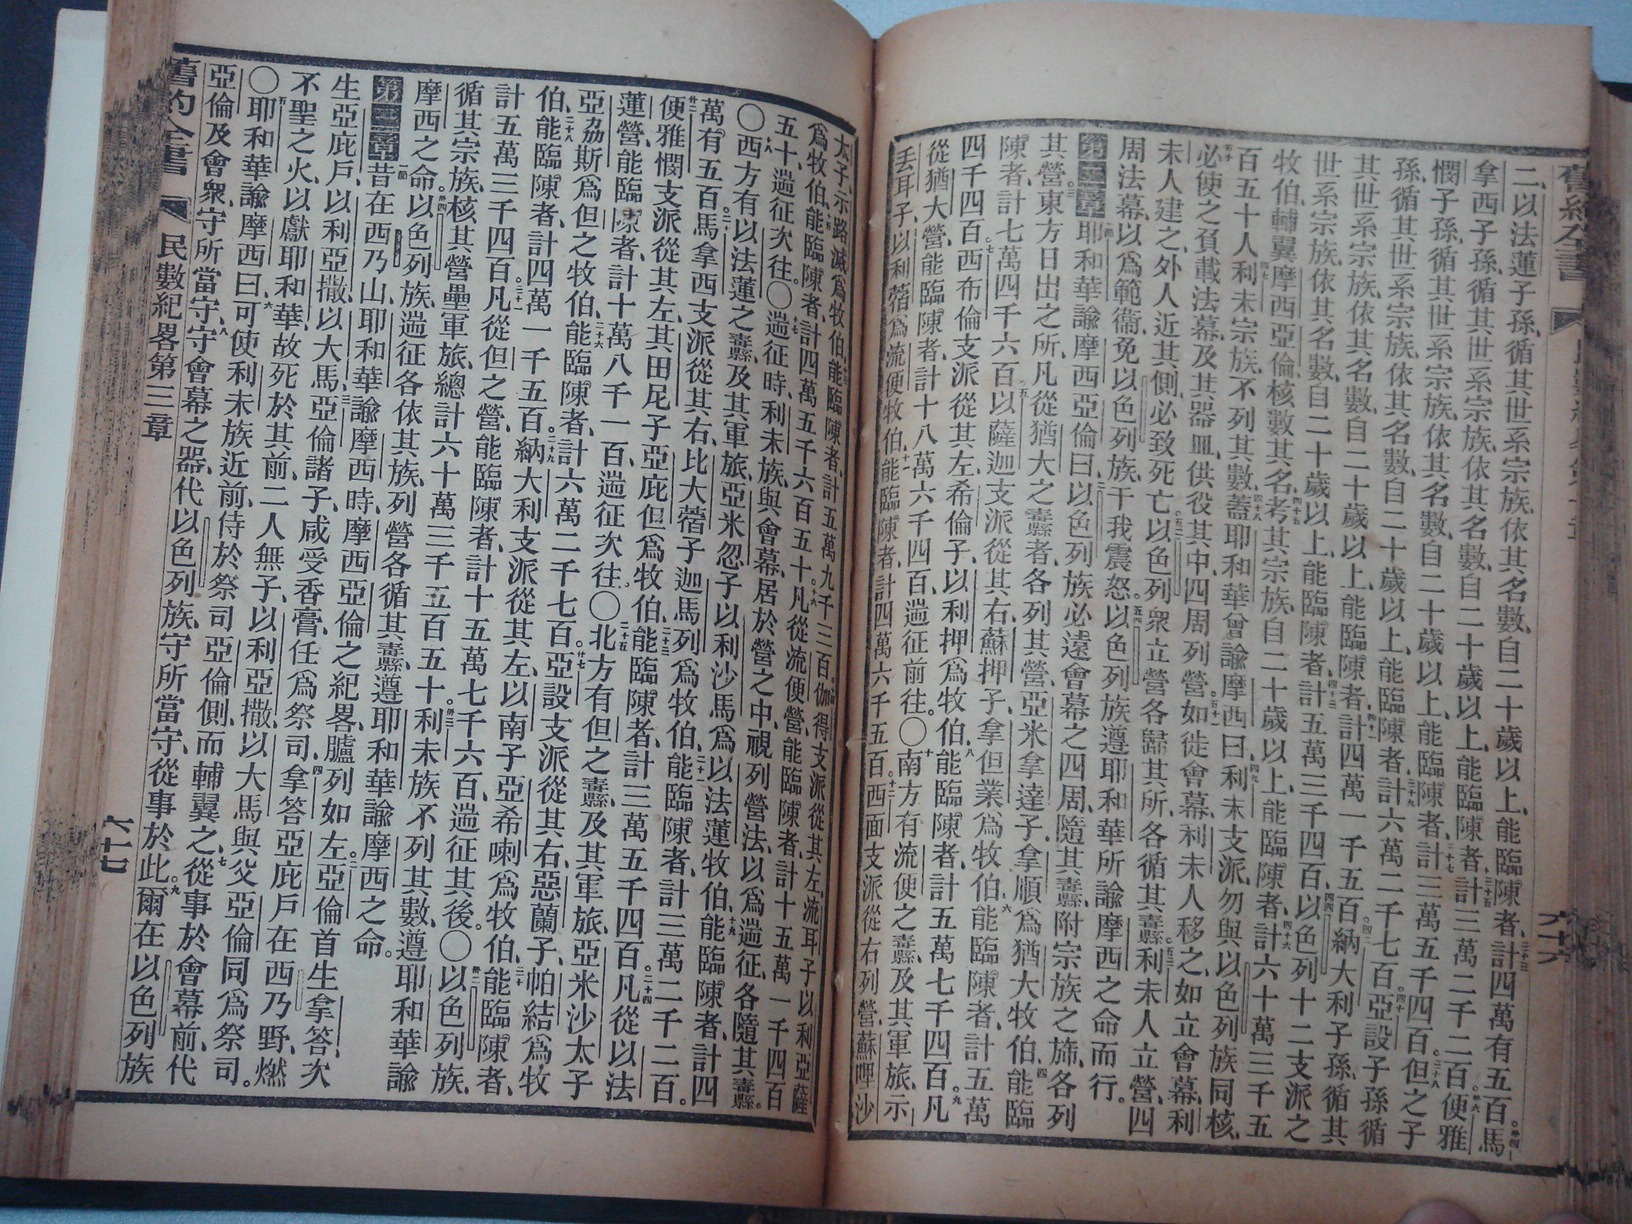 二、以法蓮子孫、循其世系宗族、依其名數、自二十歲以上、能臨陳者、計四萬有五百。馬
拿西子孫、循其世系宗族、依其名數、自二十歲以上、能臨陳者、計三萬二千二百。便雅
憫子孫、循其世系宗族、依其名數、自二十歲以上、能臨陳者、計三萬五千四百。但之子
孫、循其世系宗族、依其名數、自二十歲以上、能臨陳者、計六萬二千七百。亞設子孫循
其世系宗族、依其名數、自二十歲以上、能臨陳者、計四萬一千五百。納大利子孫、循其
世系宗族、依其名數、自二十歲以上、能臨陳者、計五萬三千四百。以色列十二支派之
牧伯、輔翼摩西亞倫、核數其名、考其宗族、自二十歲以上、能臨陳者、計六十萬三千五
百五十人。利未宗族、不列其數、蓋耶和華曾諭摩西曰、利未支派、勿與以色列族同核、
必使之負載法幕、及其器皿、供役其中、四周列營。如徙會幕、利未人移之、如立會幕、利
未人建之、外人近其側、必致死亡。以色列衆立營、各歸其所、各循其纛。利未人立營、四
周法幕、以爲範衞、免以色列族、干我震怒。以色列族遵耶和華所諭摩西之命而行。
第二章 耶和華諭摩西亞倫曰、以色列族必遠會幕之四周、隨其纛、附宗族之旆、各列
其營。東方日出之所、凡從猶大之纛者、各列其營、亞米拿達子、拿順、爲猶大牧伯、能臨
陳者、計七萬四千六百。以薩迦支派從其右、蘇押子、拿但業爲牧伯、能臨陳者、計五萬
四千四百。西布倫支派從其左、希倫子、以利押爲牧伯、能臨陳者、計五萬七千四百。凡
從猶大營、能臨陳者、計十八萬六千四百、遄征前往。〇南方有流便之纛、及其軍旅、示
丟耳子、以利蓿爲流便牧伯、能臨陳者、計四萬六千五百。西面支派從右列營、蘇哩沙
太子、示路滅爲牧伯、能臨陳者、計五萬九千三百。伽得支派從其左、流耳子、以利亞薩
爲牧伯、能臨陳者、計四萬五千六百五十。凡從流便營、能臨陳者、計十五萬一千四百
五十、遄征次往。〇遄征時、利未族與會幕居於營之中、視列營法、以爲遄征、各隨其纛。
〇西方有以法蓮之纛、及其軍旅、亞米忽子、以利沙馬、爲以法蓮牧伯、能臨陳者、計四
萬有五百。馬拿西支派從其右、比大蓿子、迦馬列爲牧伯、能臨陳者、計三萬二千二百。
便雅憫支派從其左、其田尼子、亞庇但爲牧伯、能臨陳者、計三萬五千四百。凡從以法
蓮營、能臨陳者、計十萬八千一百、遄征次往。〇北方有但之纛、及其軍旅、亞米沙太子
亞希斯、爲但之牧伯、能臨陳者、計六萬二千七百。亞設支派從其右、惡蘭子、帕結爲牧
伯、能臨陳者、計四萬一千五百。納大利支派從其左、以南子、亞希喇爲牧伯、能臨陳者、
計五萬三千四百。凡從但之營、能臨陳者、計十五萬七千六百、遄征其後。〇以色列族、
循其宗族、核其營壘軍旅、總計六十萬三千五百五十。利未族不列其數、遵耶和華諭
摩西之命。以色列族、遄征各依其族、列營各循其纛、遵耶和華諭摩西之命。
第三章 昔在西乃山、耶和華諭摩西時、摩西亞倫之紀畧、臚列如左。亞倫首生拿答、次
生亞庇戶、以利亞撒、以大馬。亞倫諸子、咸受香膏、任爲祭司、拿答亞庇戶在西乃野、燃
不聖之火、以獻耶和華、故死於其前、二人無子、以利亞撒、以大馬與父亞倫同爲祭司。
〇耶和華諭摩西曰、可使利未族近前、侍於祭司亞倫側、而輔翼之、從事於會幕前、代
亞倫及會衆、守所當守、守會幕之器、代以色列族、守所當守、從事於此。爾在以色列族
舊約全書 民數紀畧第三章 六十七